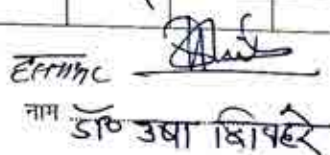 हस्ताक्षर
नाम डॉ० उषा शिवहरे